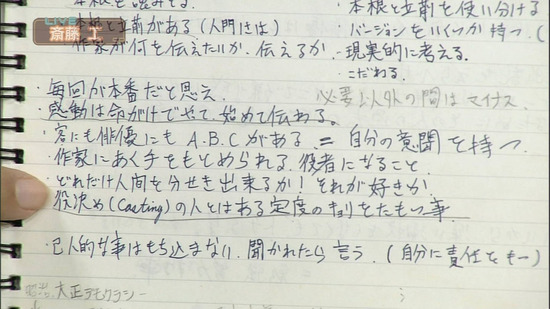 本根を読みとる。
・本根と立前を使い分ける
LIVE
斎藤 工
本根と立前がある(人間には)
・バージョンをいくつか持つ。(
作家が何を伝えたいか、伝えるか
・現実的に考える。
・こだわる。
・毎回が本番だと思え。
必要以外の間はマイナス
・感動は命がけでやって、始めて伝わる。
・客にも俳優にもA.B.Cがある = 自分の意聞を持つ。
・作家にあく手をもとめられる役者になること
・どれだけ人間を分せき出来るか!それが好きか
役決め(Casting)の人とはある定度のキョリをたもつ事。
・己人的な事はもち込まない、聞かれたら言う。(自分に責任をもー)
明治、大正デモクラシー